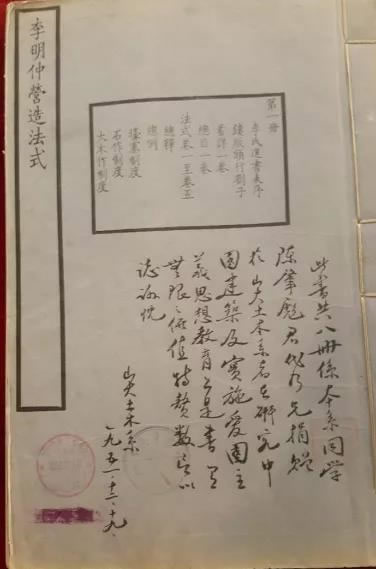 李明仲營造法式
第一冊
李氏進書表序
鏤版頒行劄子
看詳一卷
總目一卷
法式卷一至卷五
總釋
總例
壕寨制度
石作制度
大木作制度
此書共八冊係本系同學
陈肇彪君代乃兄捐贈
於山大土木系者在研究中
國建築及實施爱國主
義思想教育上是書有
無限之價值特贅數言以
誌謝忱
山大土木系
一九五一、十二、十九、